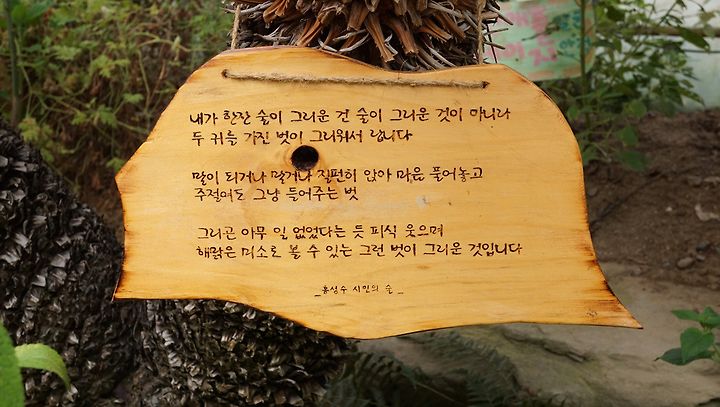 내가 한잔 술이 그리운 건 술이 그리운 것이 아니라
두 귀를 가진 벗이 그리워서 랍니다
말이 되거나 말거나 질펀히 앉아 마음 풀어놓고
주절여도 그냥 들어주는 벗
그리곤 아무 일 없었다는 듯 피식 웃으며
해맑은 미소로 볼 수 있는 그런 벗이 그리운 것입니다
_홍성수 시인의 술_